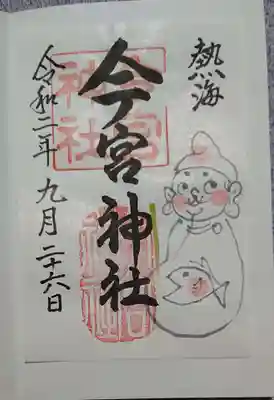 熱海
今宮神社
令和二年 九月 二十六日